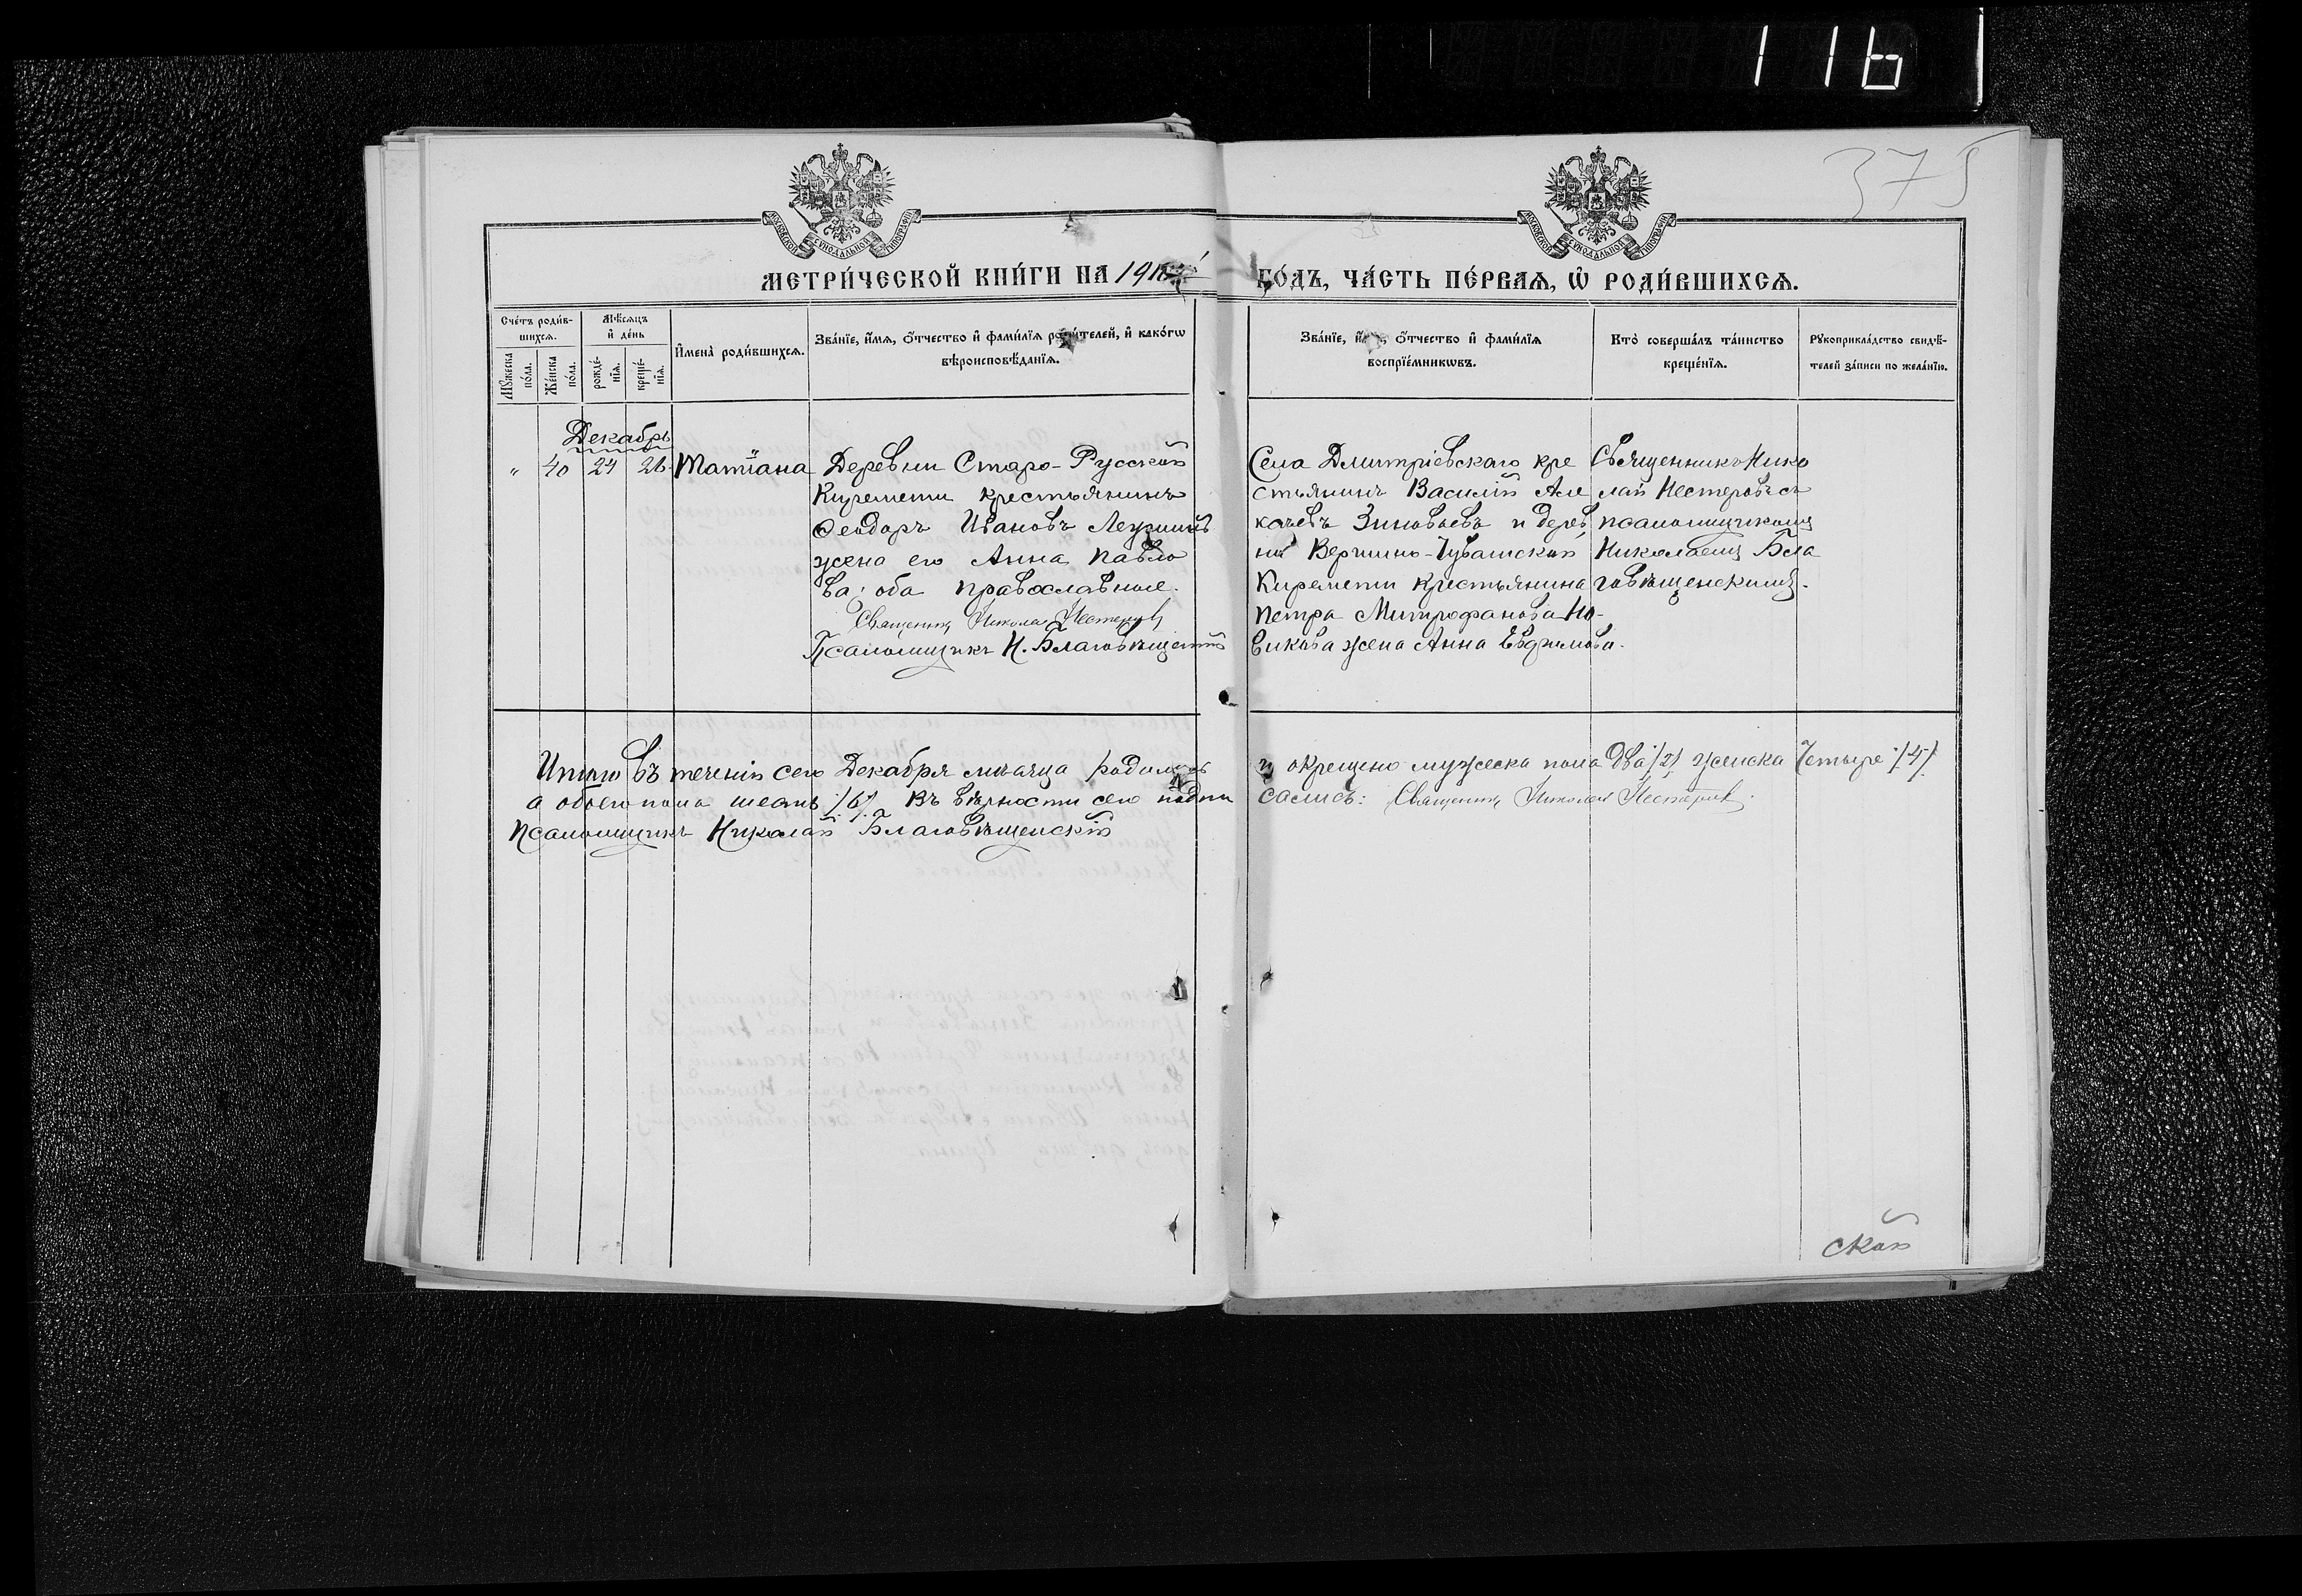 116
375
МОСКОВСКОЙ СѴНОДАЛЬНОЙ ТИПОГРАФІИ
МОСКОВСКОЙ СѴНОДАЛЬНОЙ ТИПОГРАФІИ
МЕТРИ́ЧЕСКОЙ КНИ́ГИ НА 191
ГО́ДЪ, ЧА́СТЬ ПЕ́РВАѦ, Ѡ҆ РОДИ́ВШИХСѦ.
Сче́тъ роди́в-
шихсѧ.
Мꙋ́жеска по́ла.
Же́нска по́ла.
Мѣ́сѧцъ
и҆ де́нь
рожде́-
нїѧ.
креще́-
нїѧ.
И҆мена̀ роди́вшихсѧ.
Зва́нїе, и҆́мѧ, ѻ҆́тчество и҆ фами́лїѧ роди́телей, и҆ како́гѡ
вѣроисповѣ́данїѧ.
Зва́нїе, и҆́мѧ, ѻ҆́тчество и҆ фами́лїѧ
воспрїе́мникѡвъ.
Кто̀ соверша́лъ та́инство
креще́нїѧ.
Рꙋкоприкла́дство свидѣ́-
телей за́писи по жела́нїю.
Декабрь
" 40 24 26 Татіана
Деревни Старо-Русской
Киремети крестьянинъ
Ѳеодоръ Ивановъ
жена его Анна Павло
ва; оба православные.
Священникъ Николай Нестеровъ
Псаломщикъ Н. Благовѣщенскій
Села Дмитріевскаго кре
стьянинъ Василій Але
ксѣевъ Зиновьевъ и дерев
ни Вершино-Чувашской
Киремети крестьянина
Петра Митрофанова Но-
викова жена Анна Евфимова.
Священникъ Нико
лай Нестеровъ съ
псаломщикомъ
Николаемъ Бла
говѣщенскимъ.
Итого въ теченіи сего Декабря мѣсяца родилось
и окрещено мужеска пола два /2/ женска четыре /4/
а обоего пола шесть /6/. Въ вѣрности сего подпи
сались: Священникъ Николай Нестеровъ.
Псаломщикъ Николай Благовѣщенскій
ской